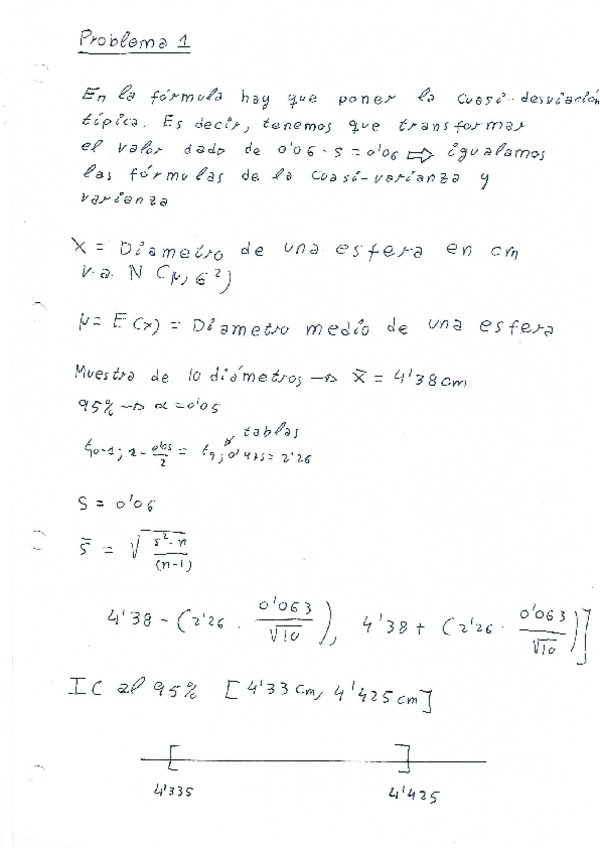 Problema 1
En la fórmula hay que poner la cuasi-desviación
típica. Es decir, tenemos que transformar
el valor dado de 0'06 · s = 0'06 ⇨ igualamos
las fórmulas de la cuasi-varianza y
varianza
X = Diametro de una esfera en cm
v.a. N (μ, σ²)
μ = E(x) = Diametro medio de una esfera
Muestra de 10 diámetros → x̄ = 4'38 cm
95% → α = 0'05
tablas
t₁₀₋₁; 1 - 0'05/2 = t₉; 0'975 = 2'26
S = 0'06
s̄ = √(s²·n/(n-1))
4'38 - (2'26 · 0'063/√10), 4'38 + (2'26 · 0'063/√10)]
IC al 95% [4'33 cm, 4'425 cm]
4'335 4'425